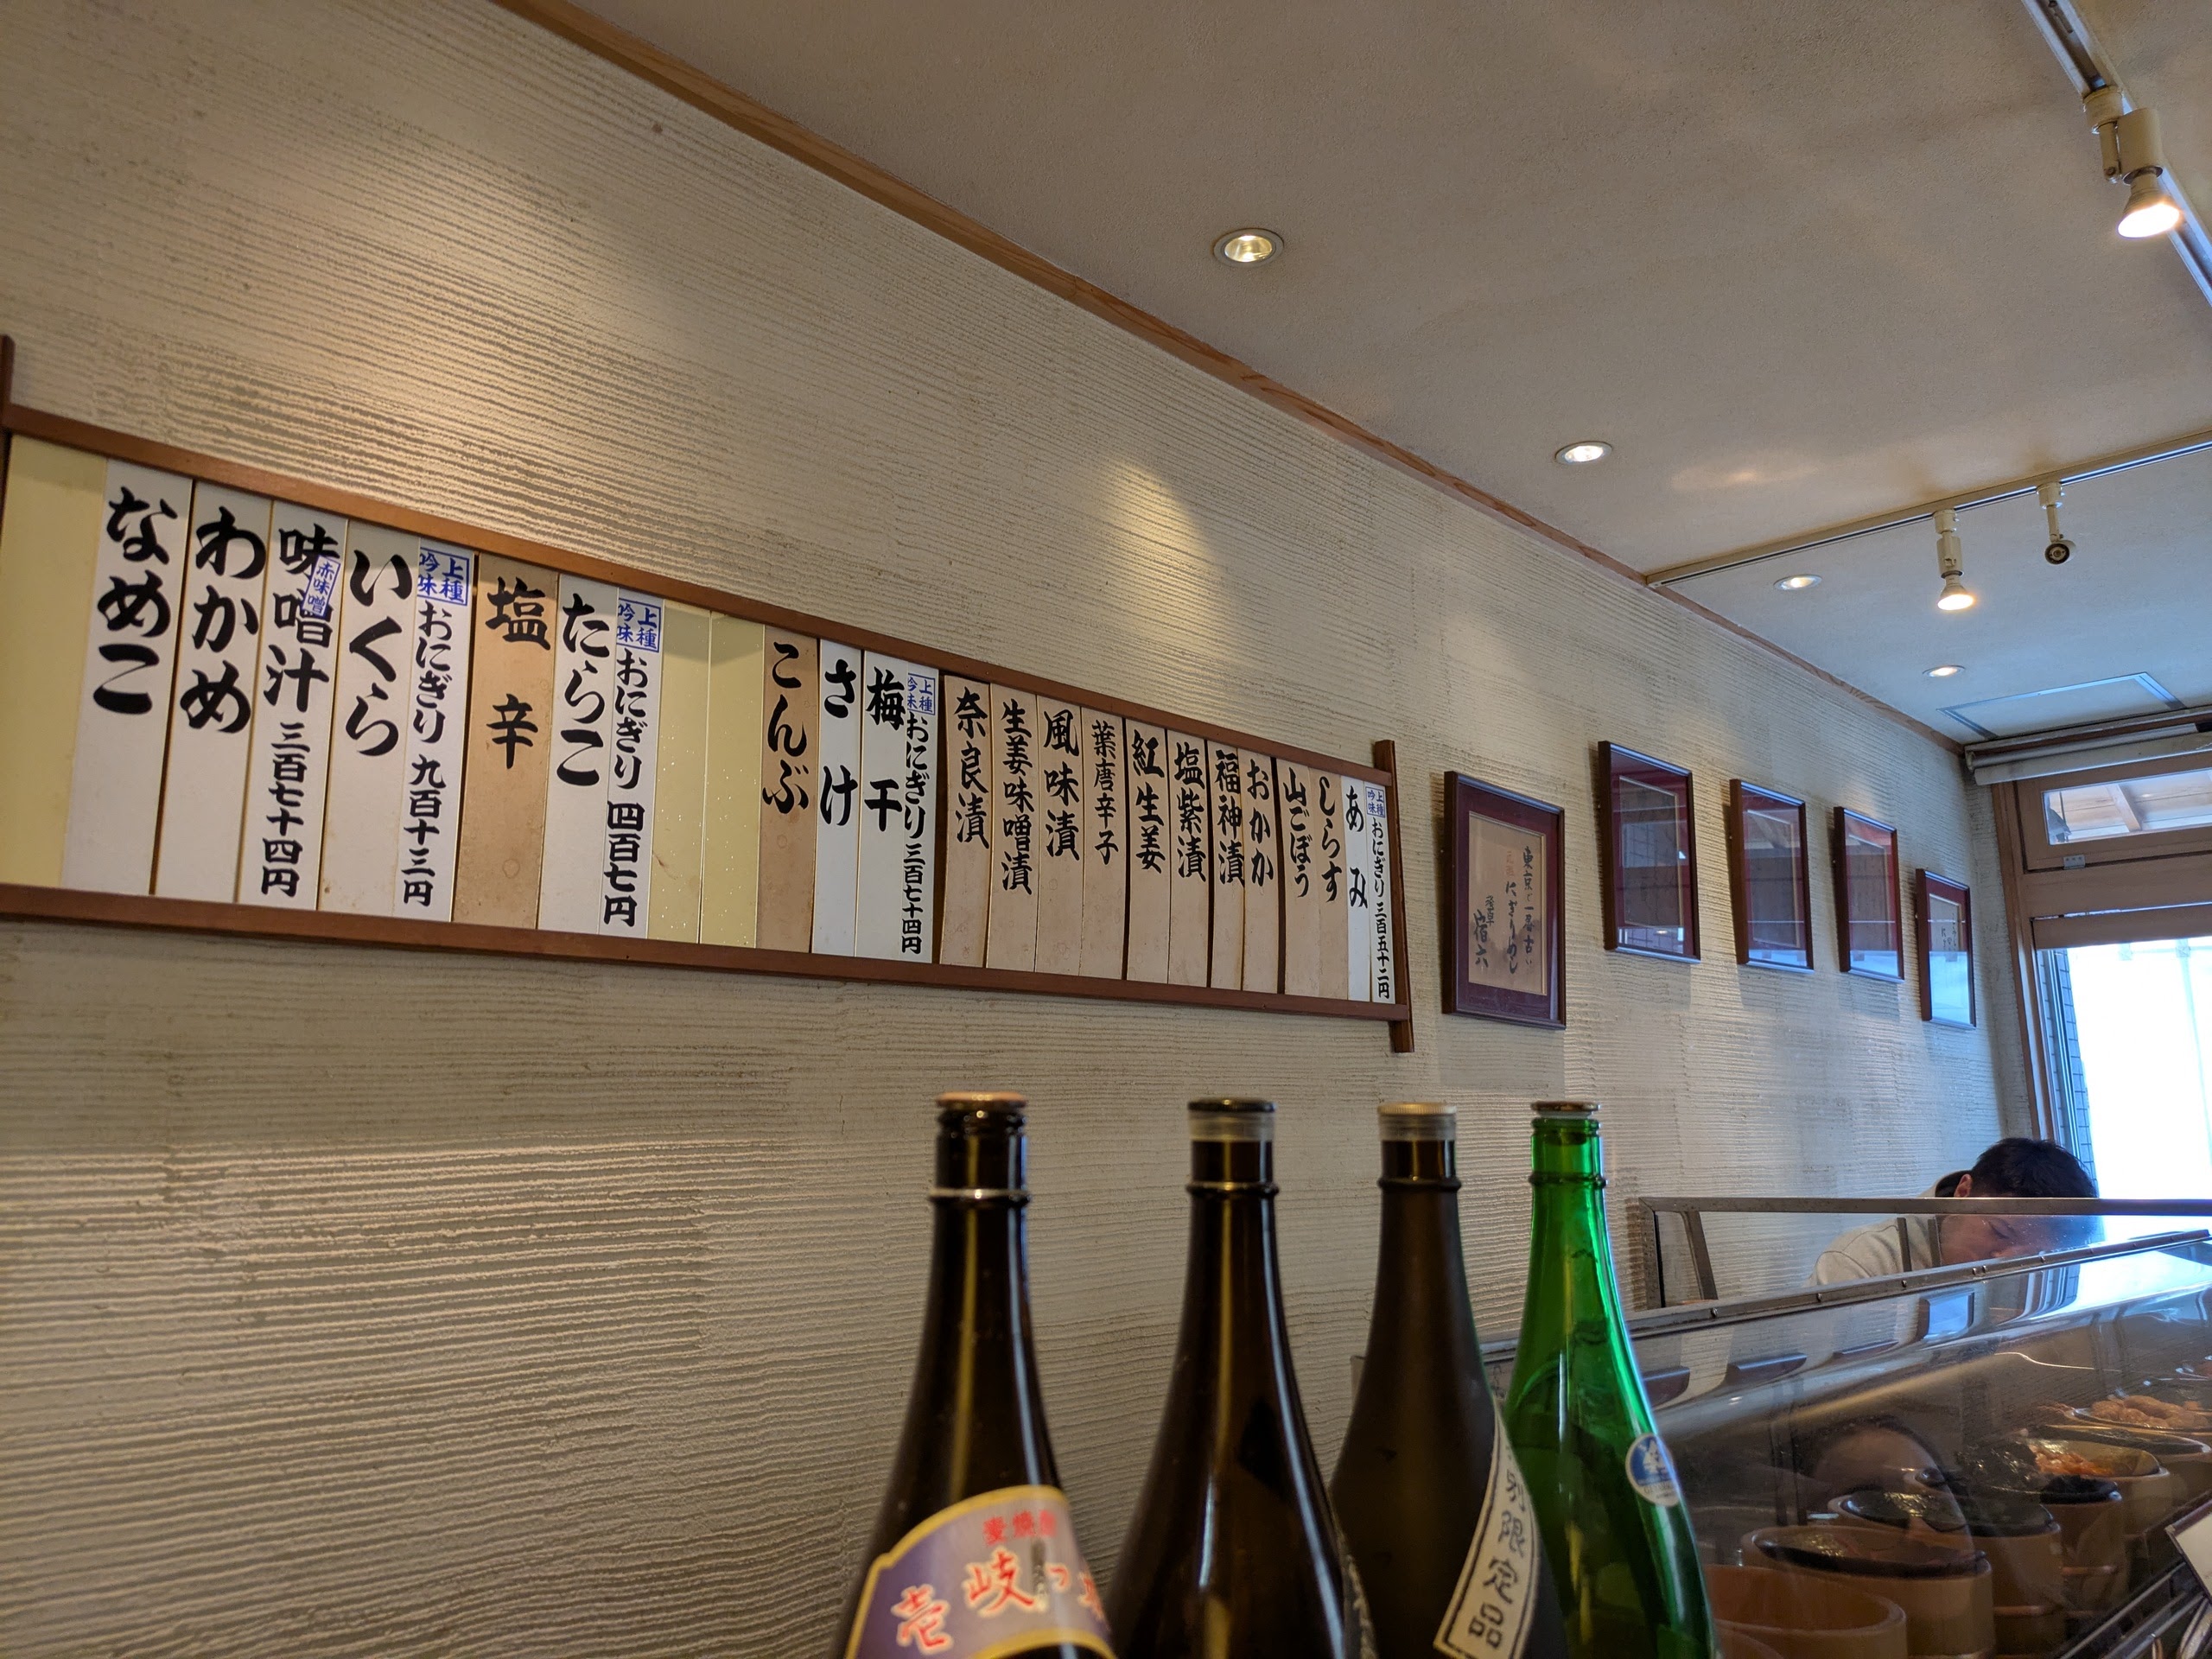 上種
吟味
おにぎり 三百五十二円
あみ
しらす
山ごぼう
おかか
福神漬
塩紫漬
紅生姜
葉唐辛子
風味漬
生姜味噌漬
奈良漬
上種
吟味
おにぎり 三百七十四円
梅干
さけ
こんぶ
上種
吟味
おにぎり 四百七円
たらこ
塩辛
上種
吟味
おにぎり 九百十三円
いくら
味噌汁 三百七十四円
赤味噌
わかめ
なめこ
東京で一番古い
にぎりめし
浅草
宿六
壱岐っ
別限定品